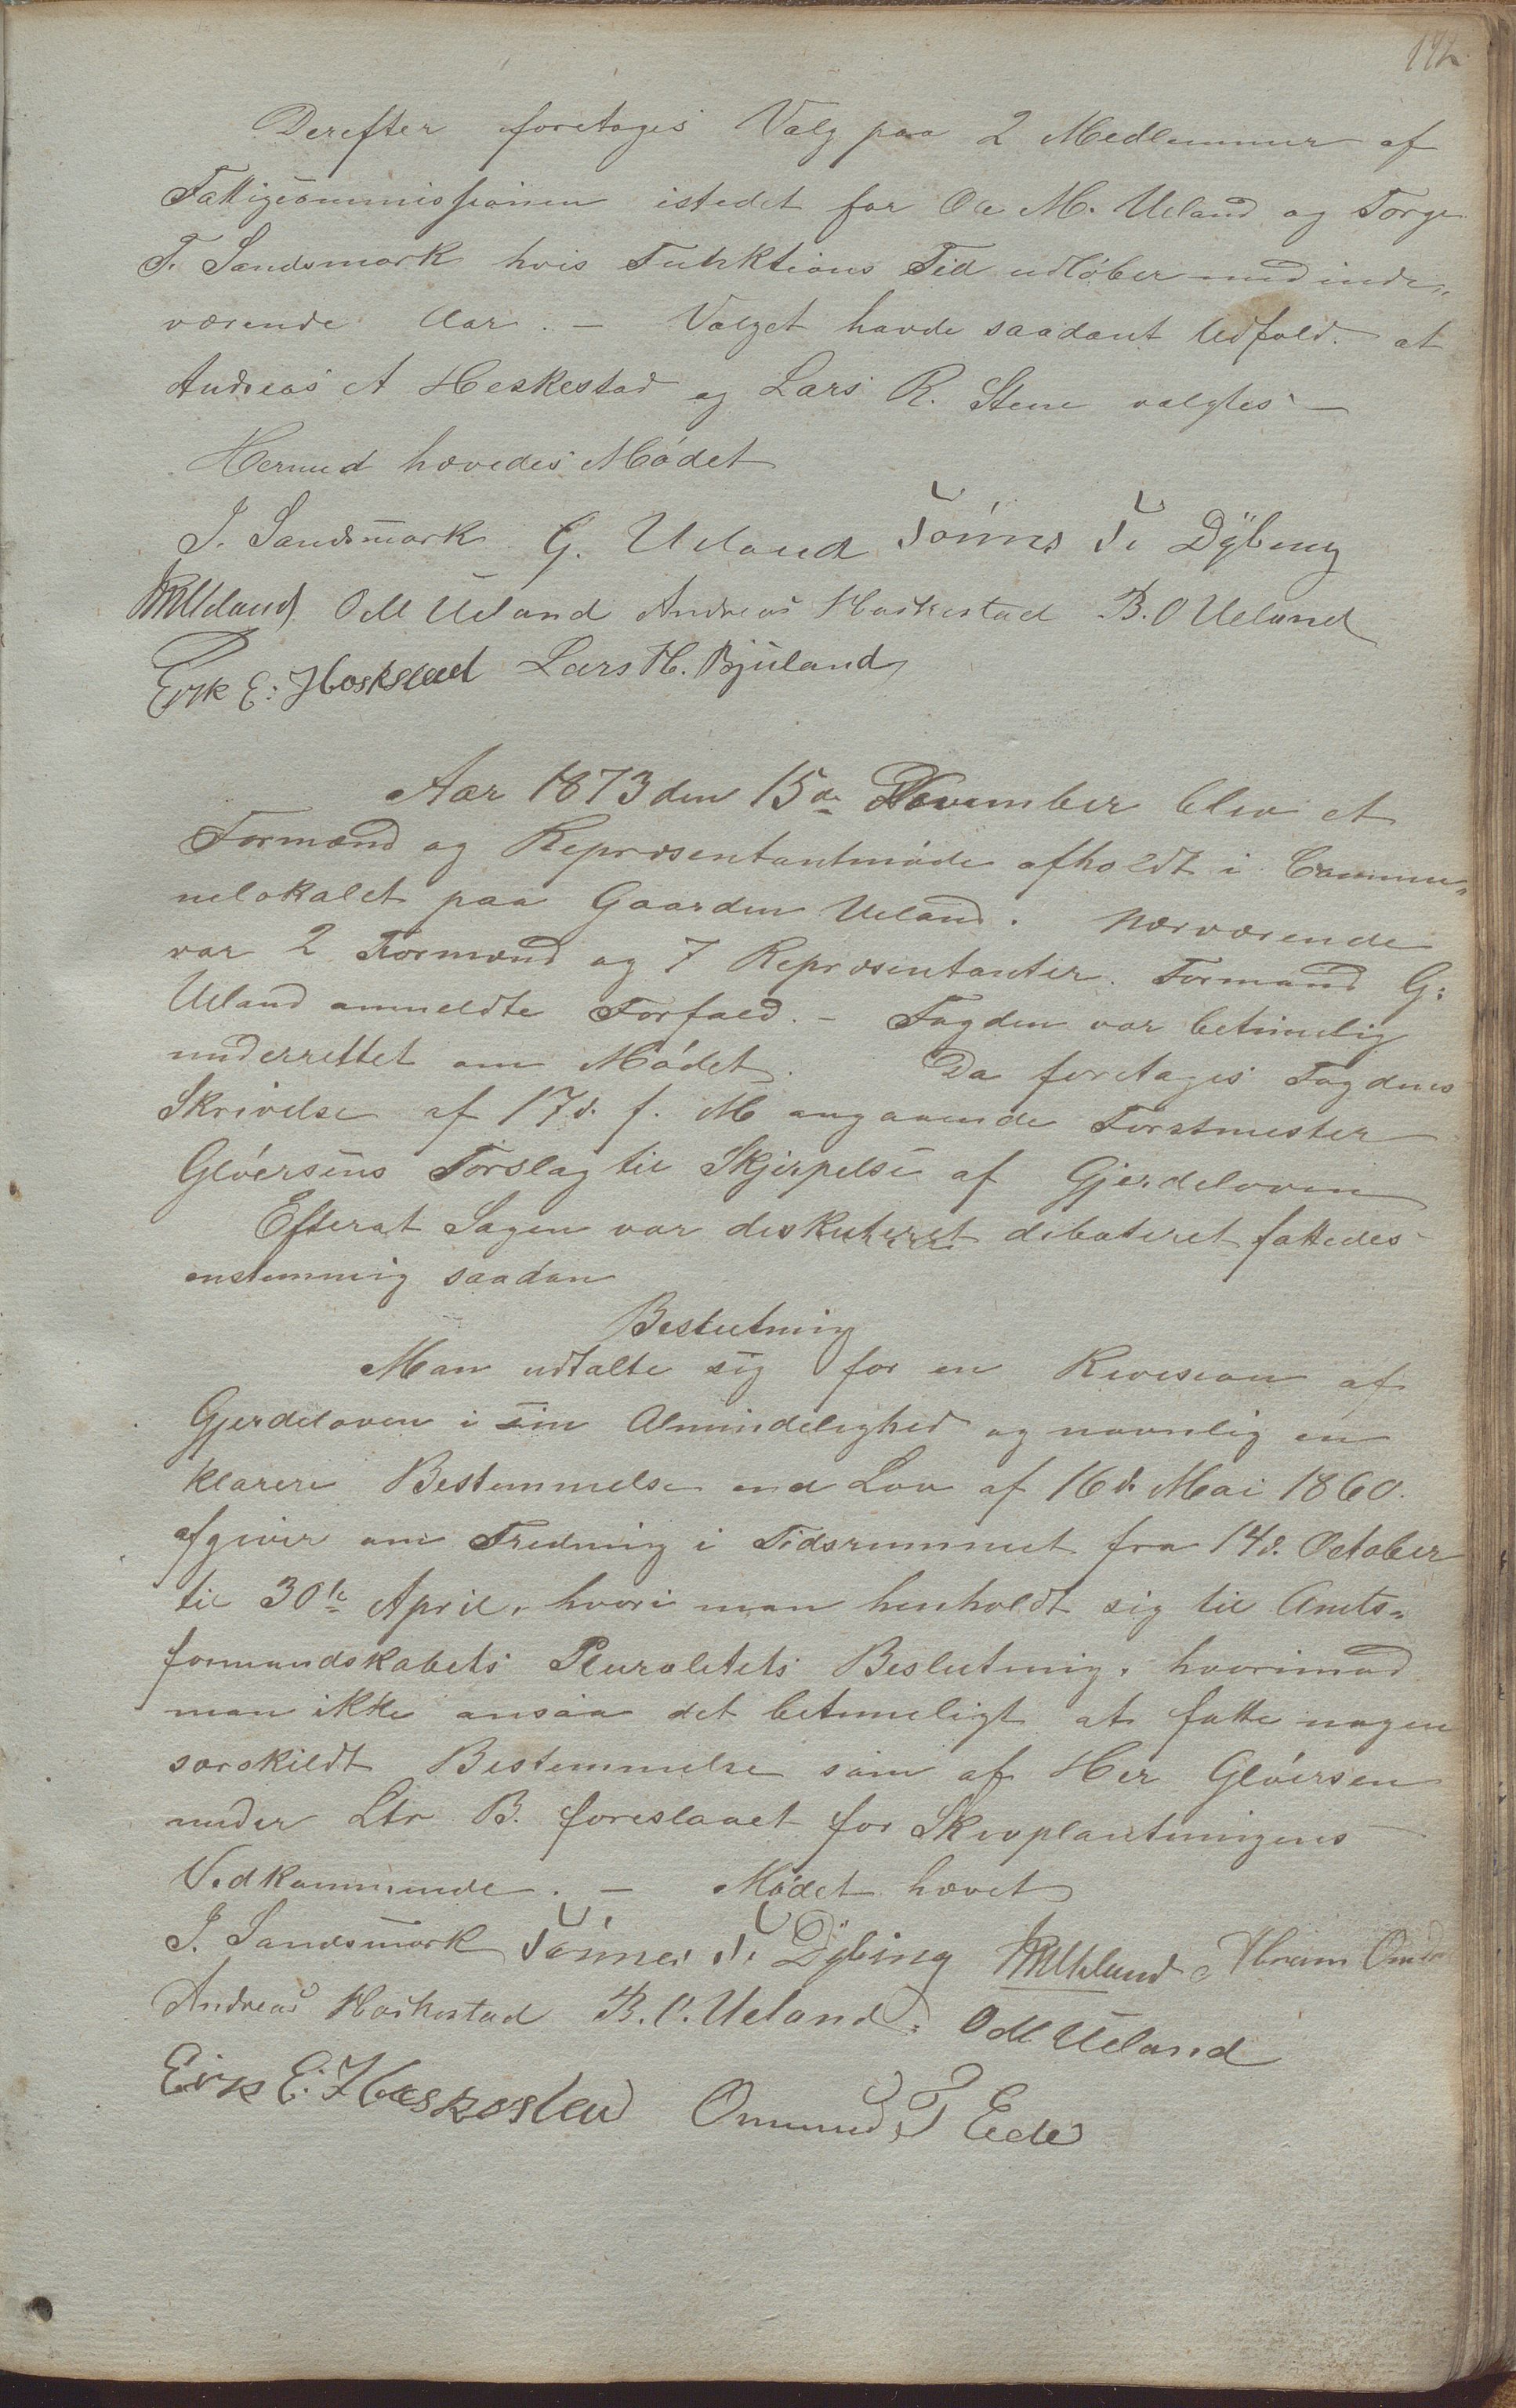 192
Derefter foretoges Valg paa 2 Medlemmer af
Fattigcommissionen istedet for Ole M. Ueland og Torger
T. Sandsmark hvis Funktions Tid udløber med inde„
værende Aar. — Valget havde saadant Udfald. at
Andreas A Heskestad og Lars R. Stene valgtes —
Hermed hævedes Mødet
J. Sandsmark G. Ueland Tönnes T. Dÿbing
Ueland O M Ueland Andreas Haskestad B. O Ueland
Eirk E: Hæskstad Lars H. Bjuland
Aar 1873 den 15de November blev et
Formænd og Repræsentantmøde afholdt i Commu„
nelokalet paa Gaarden Ueland. Nærværende
var 2 Formænd og 7 Repræsentanter. Formand G:
Ueland anmeldte Forfald. — Fogden var betimelig
underrettet om Mødet. Da foretoges Fogdens
Skrivelse af 17d. f. M angaaende Forstmester
Gløersens Forslag til Skjerpelse af Gjerdeloven
Efterat Sagen var diskuteret debateret fattedes
enstemmig saadan
Beslutning
Man udtalte sig for en Revision af
Gjerdeloven i sin Almindelighed og navnlig en
klarere Bestemmelse end Lov af 16d. Mai 1860.
afgiver om Fredning i Tidsrummet fra 14d. October
til 30te April, hvori man henholdt sig til Amts„
formandskabets Pluralitets Beslutning, hvorimod
man ikke ansaa det betimeligt at fatte nogen
særskildt Bestemmelse som af Her Gløersen
under Ltr B. foreslaaet for Skovplantningens
Vedkommende. — Mødet hævet
J. Sandsmark Tönnes T. Dÿbing Ueland Abram Omdal
Andreas Haskestad B. O. Ueland. O M Ueland
Eirk E. Hæskestad Ommund T Eide